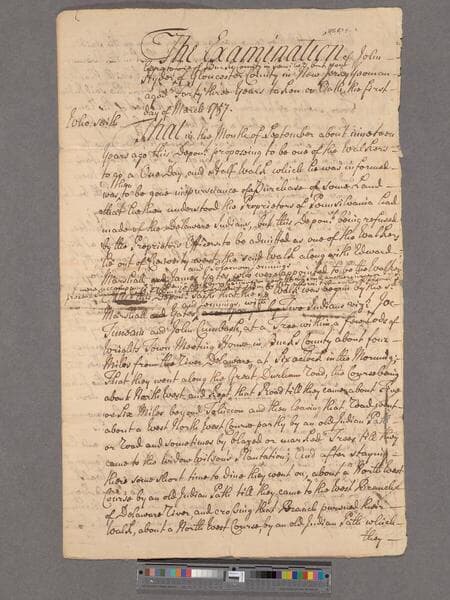 The Examination of John
Hyder of Gloucester County in New Jersey Yeoman
aged Forty three Years taken on Oath the first
day of March 1757.
Who saith
That in the Month of September about nineteen
Years ago this Depont. proposing to be one of the Walkers
to go a One Day and Half Walk which he was informed
was to be gone in pursuance of a Purchase of some Land
that he then understood the Proprietors of Pennsilvania had
made of the Delaware Indians, but this Deponent being refused
by the Proprietors Officers to be admitted as one of the Walkers
he out of Curiosity went the said Walk along with Edward
Marshall and James Yates who were appointed to be the Walkers
Depont. says that the sd. Walk was begun by the sd.
Marshall and Yates Two Indians vizt. Joe
Tuneam and John Cumbush, at a Tree within a few Rods of
Wrights Town Meeting House in Bucks County about four
Miles from the River Delaware, at Six a Clock in the Morning;
That they went along the Great Durham Road, the Course being
about North West, and kept that Road till they came about Five
or Six Miles beyond and then leaving that Road went
about a West North West Course partly by an old Indian Path
or Road and sometimes by blazed or marked Trees till they
came to the Widow Wilson's Plantation; And after staying
there some Short time to dine they went on, about a North West
Course by an old Indian Path till they came to the West Branch
of Delaware River and crossing that Branch pursued their
Walk, about a North West Course, by an old Indian Path which
they